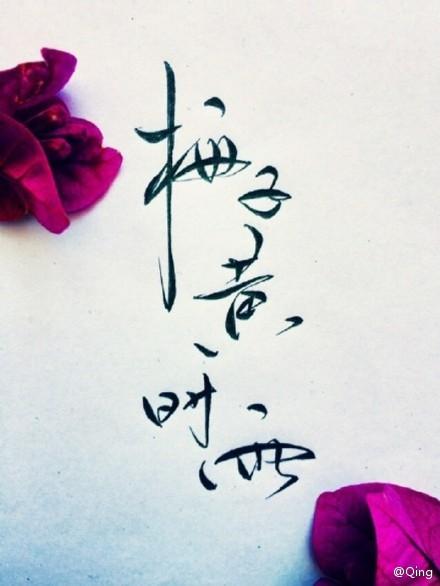 梅子黄时雨
@Qing